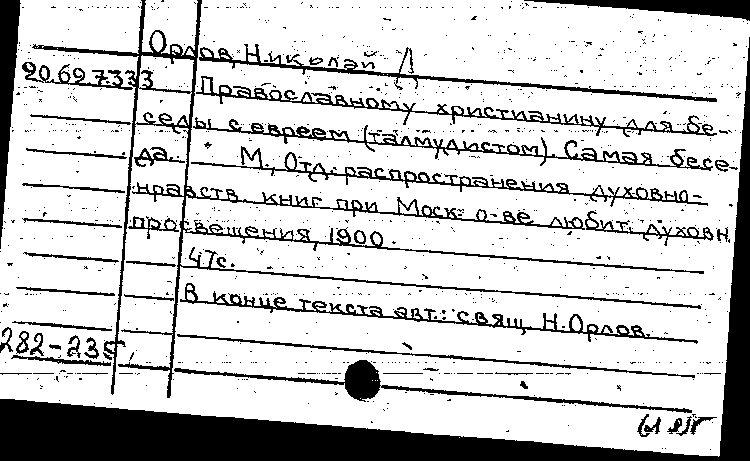 Орлов, Николай Д
20.69.7333 Православному христианину для бе-
седы с евреем (талмудистом). Самая бесе-
да. М., Отд. распространения духовно-
нравств. книг при Моск. о-ве любит. духовн.
просвещения, 1900.
47с.
В конце текста авт.: свящ. Н. Орлов.
282-235